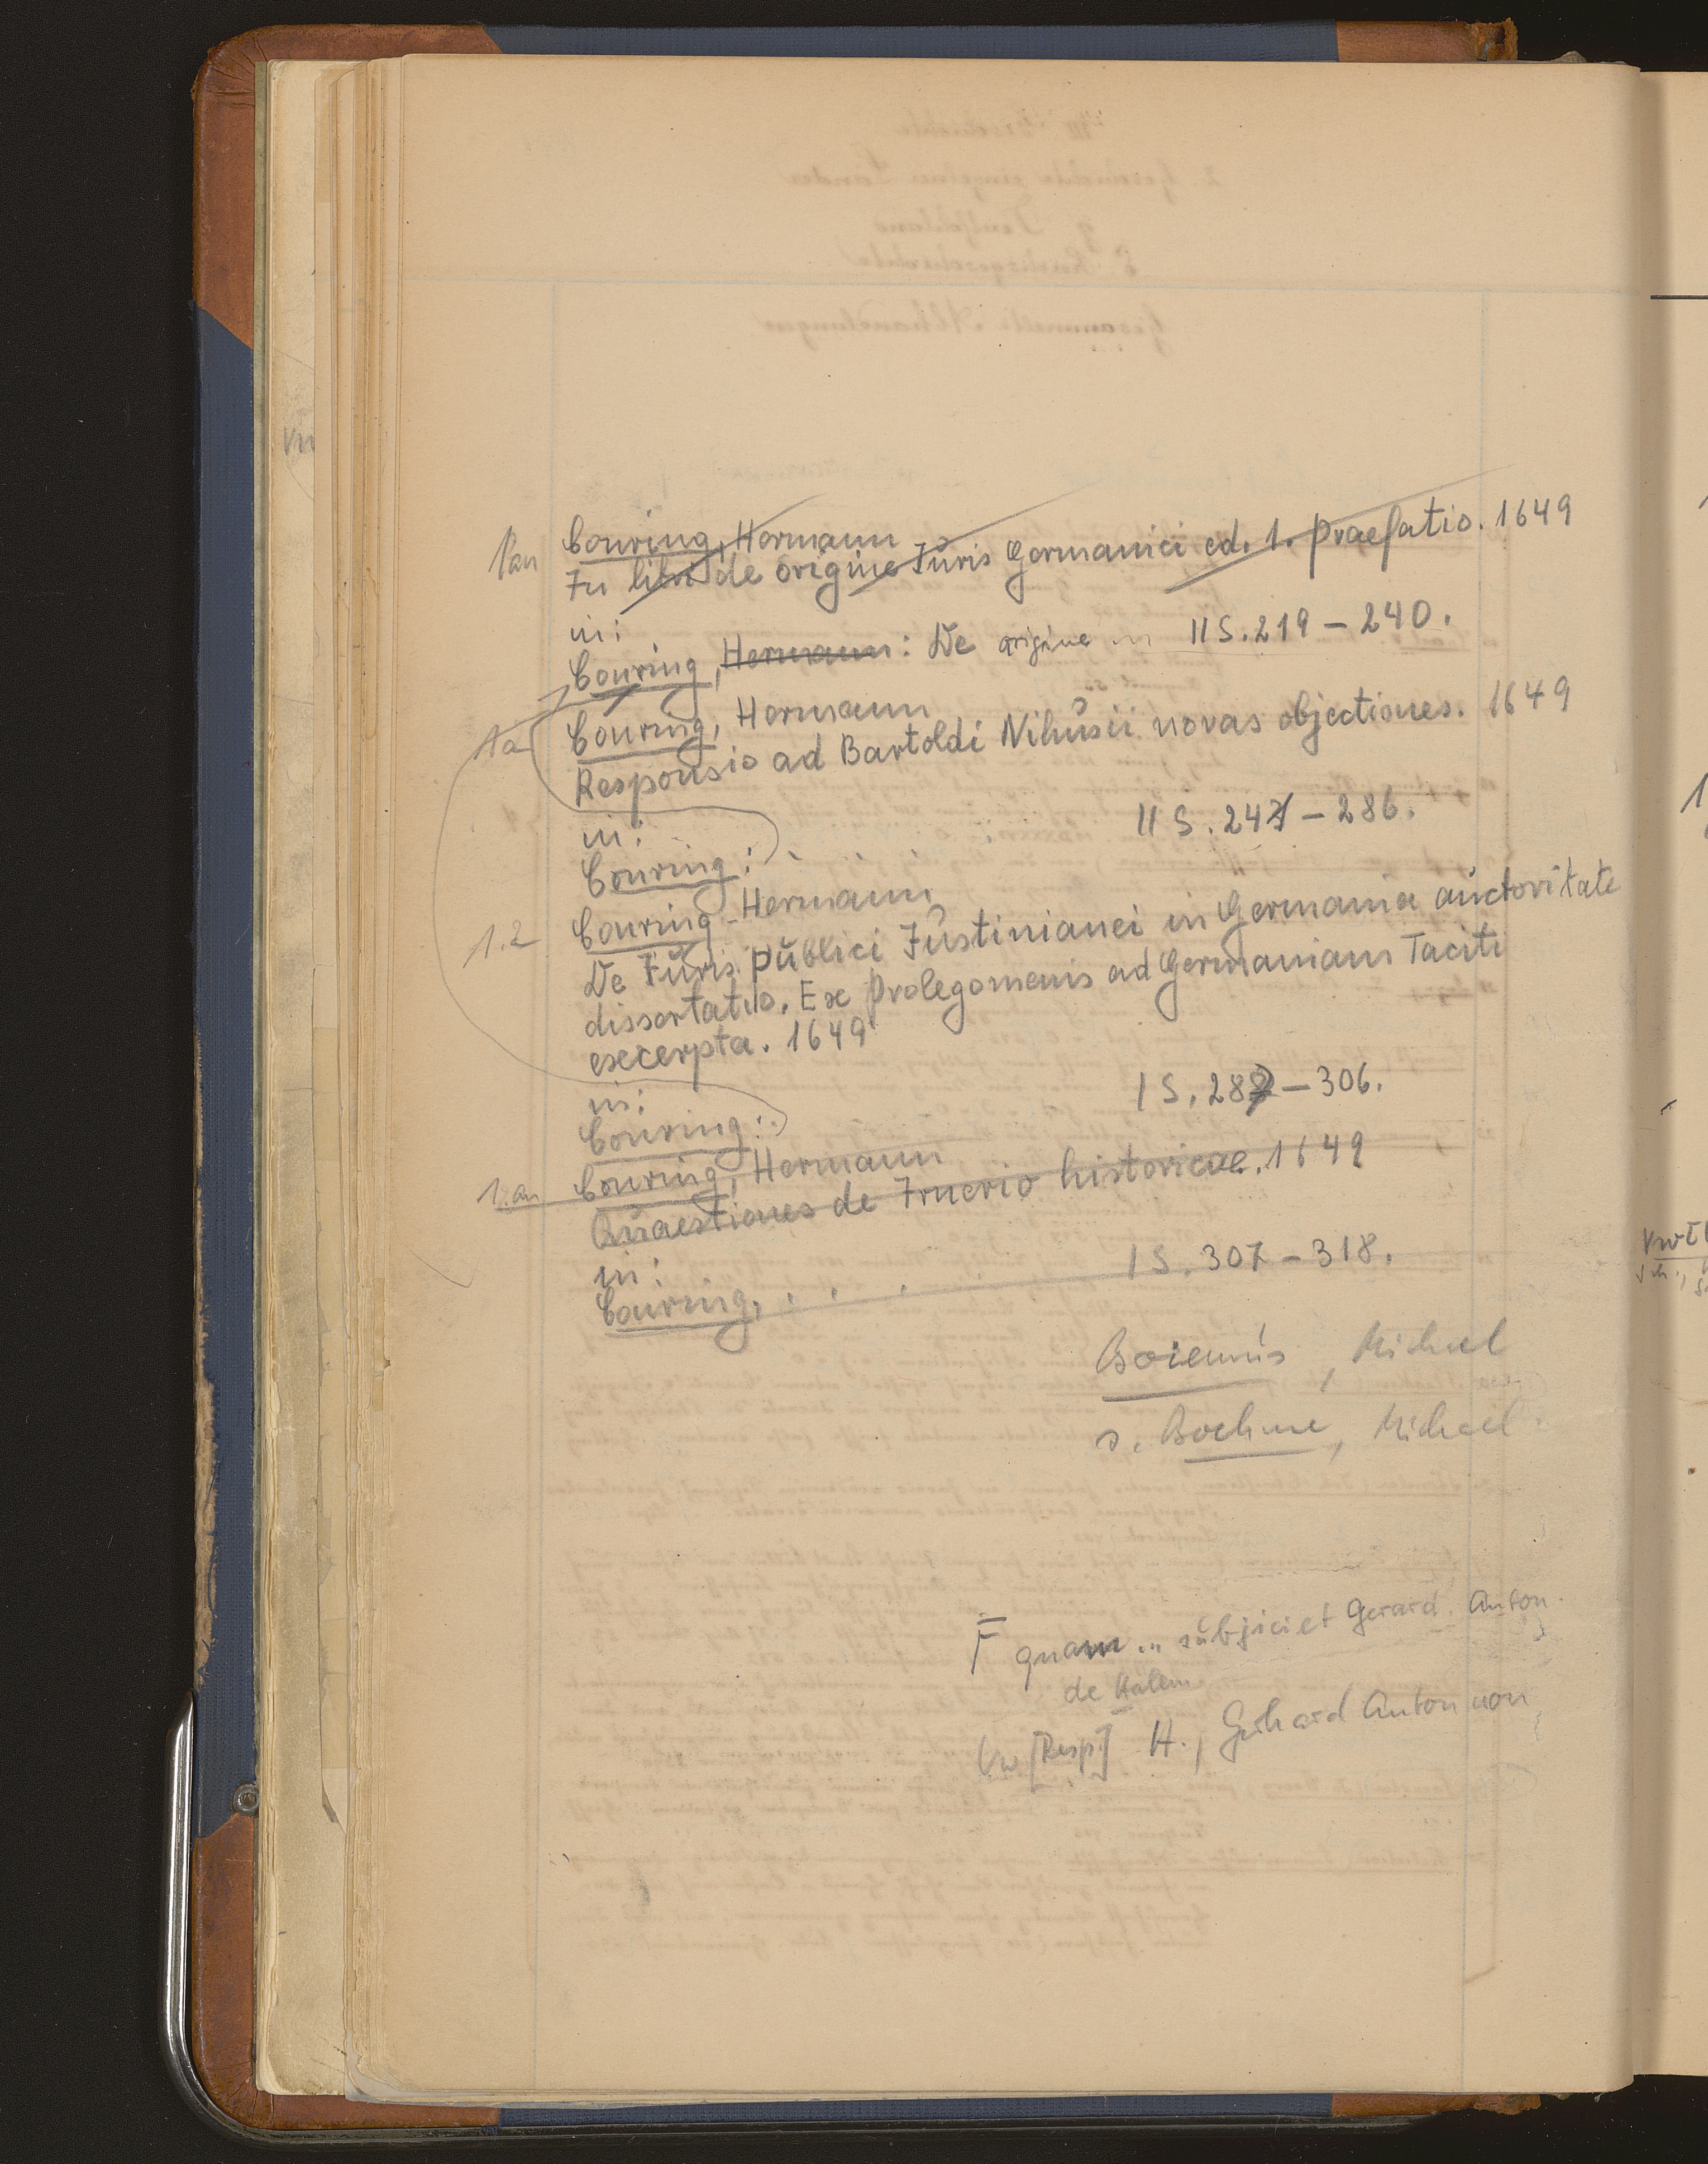 1an Conring, Hermann
In libr. de origine Juris Germanici ed. 1. Praefatio. 1649
in:
Conring, Hermann: De origine in 11 S. 219 – 240.
1a Conring, Hermann
Responsio ad Bartoldi Nihusii novas objectiones. 1649
in: 11 S. 241 – 286.
Conring:
1.2 Conring, Hermann
De Juris publici Justinianei in Germania auctoritate
dissertatio. Ex Prolegomenis ad Germaniam Taciti
excerpta. 1649
in: 1 S. 287 – 306.
Conring:
1.an Conring, Hermann
Quaestiones de Irnerio historicae. 1649
in: 1 S. 307 – 318.
Conring, . . .
Boiemus, Michael
s. Boehme, Michael
F quam ... subjiciet Gerard. Anton.
de Halem
Vw [Resp.] H., Gerhard Anton von